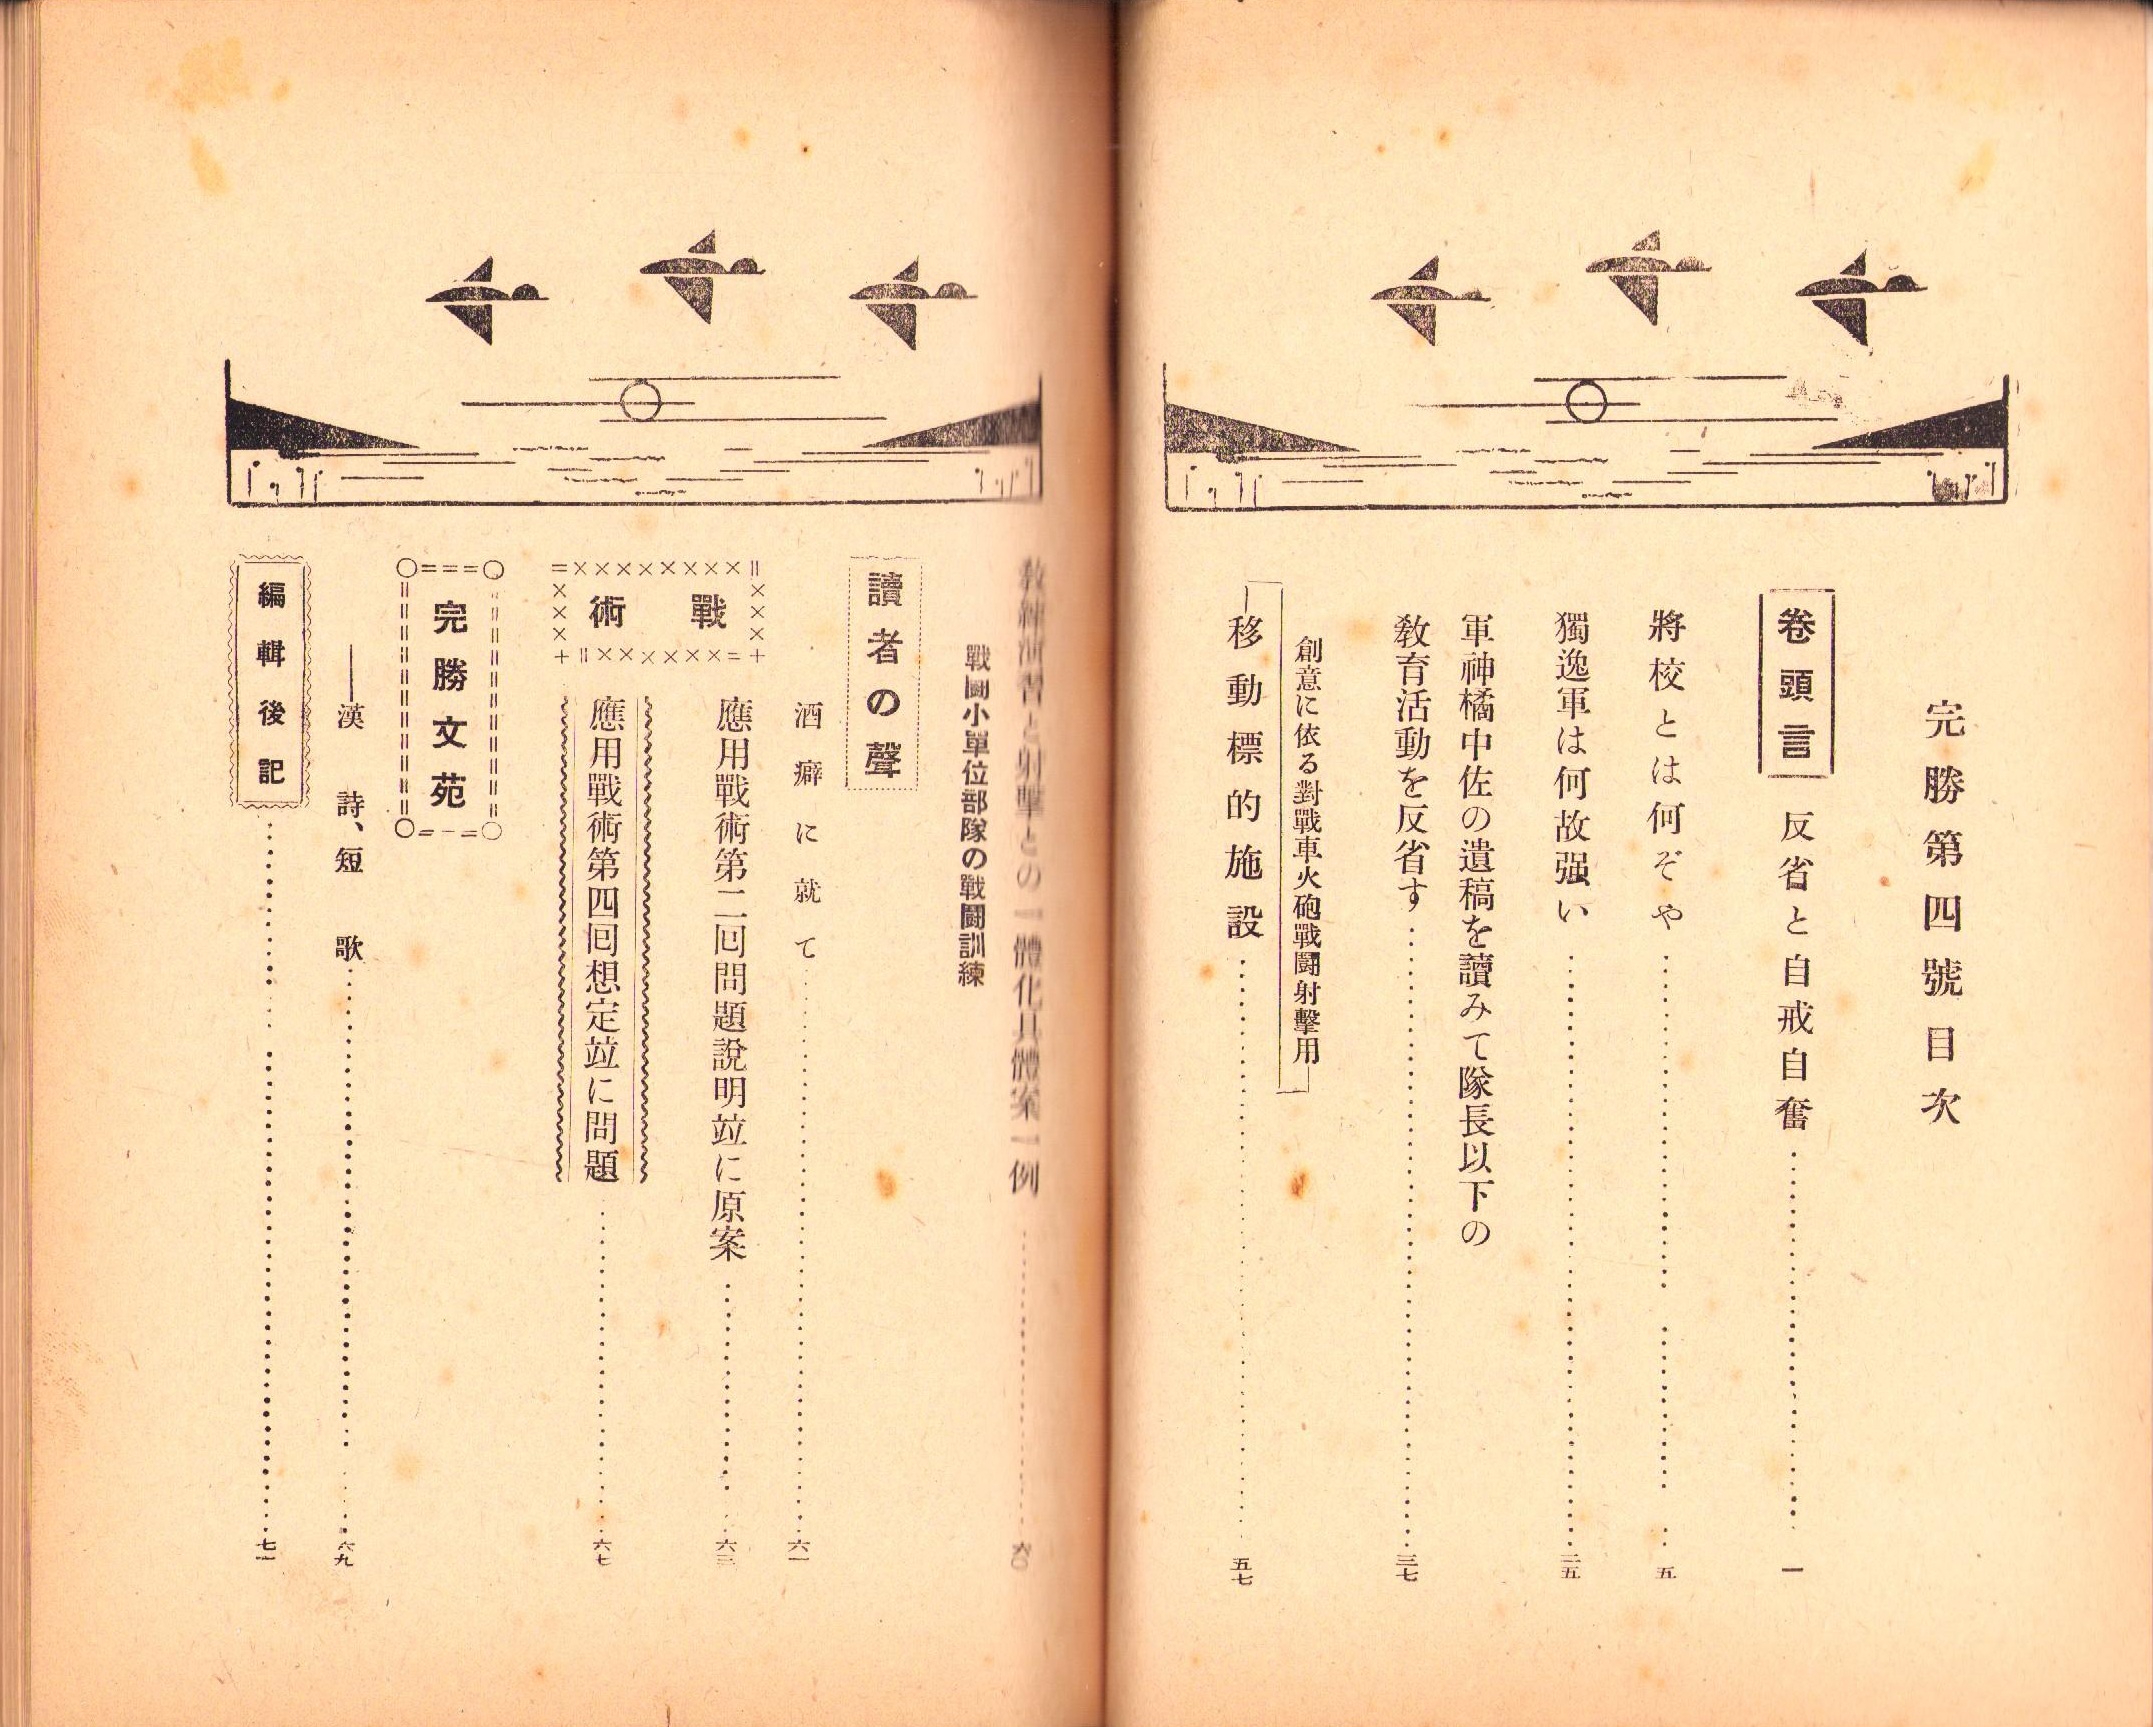 完勝第四號目次
卷頭言 反省と自戒自奮 一
將校とは何ぞや 五
獨逸軍は何故强い 二五
軍神橘中佐の遺稿を讀みて隊長以下の
敎育活動を反省す 三七
創意に依る對戰車火砲戰鬪射擊用
移動標的施設 五七
敎練演習と射擊との一體化具體案一例 六〇
戰鬪小單位部隊の戰鬪訓練
讀者の聲
酒癖に就て 六一
戰術
應用戰術第二回問題說明竝に原案 六三
應用戰術第四回想定竝に問題 六七
完勝文苑
―漢詩、短歌 六九
編輯後記 七一